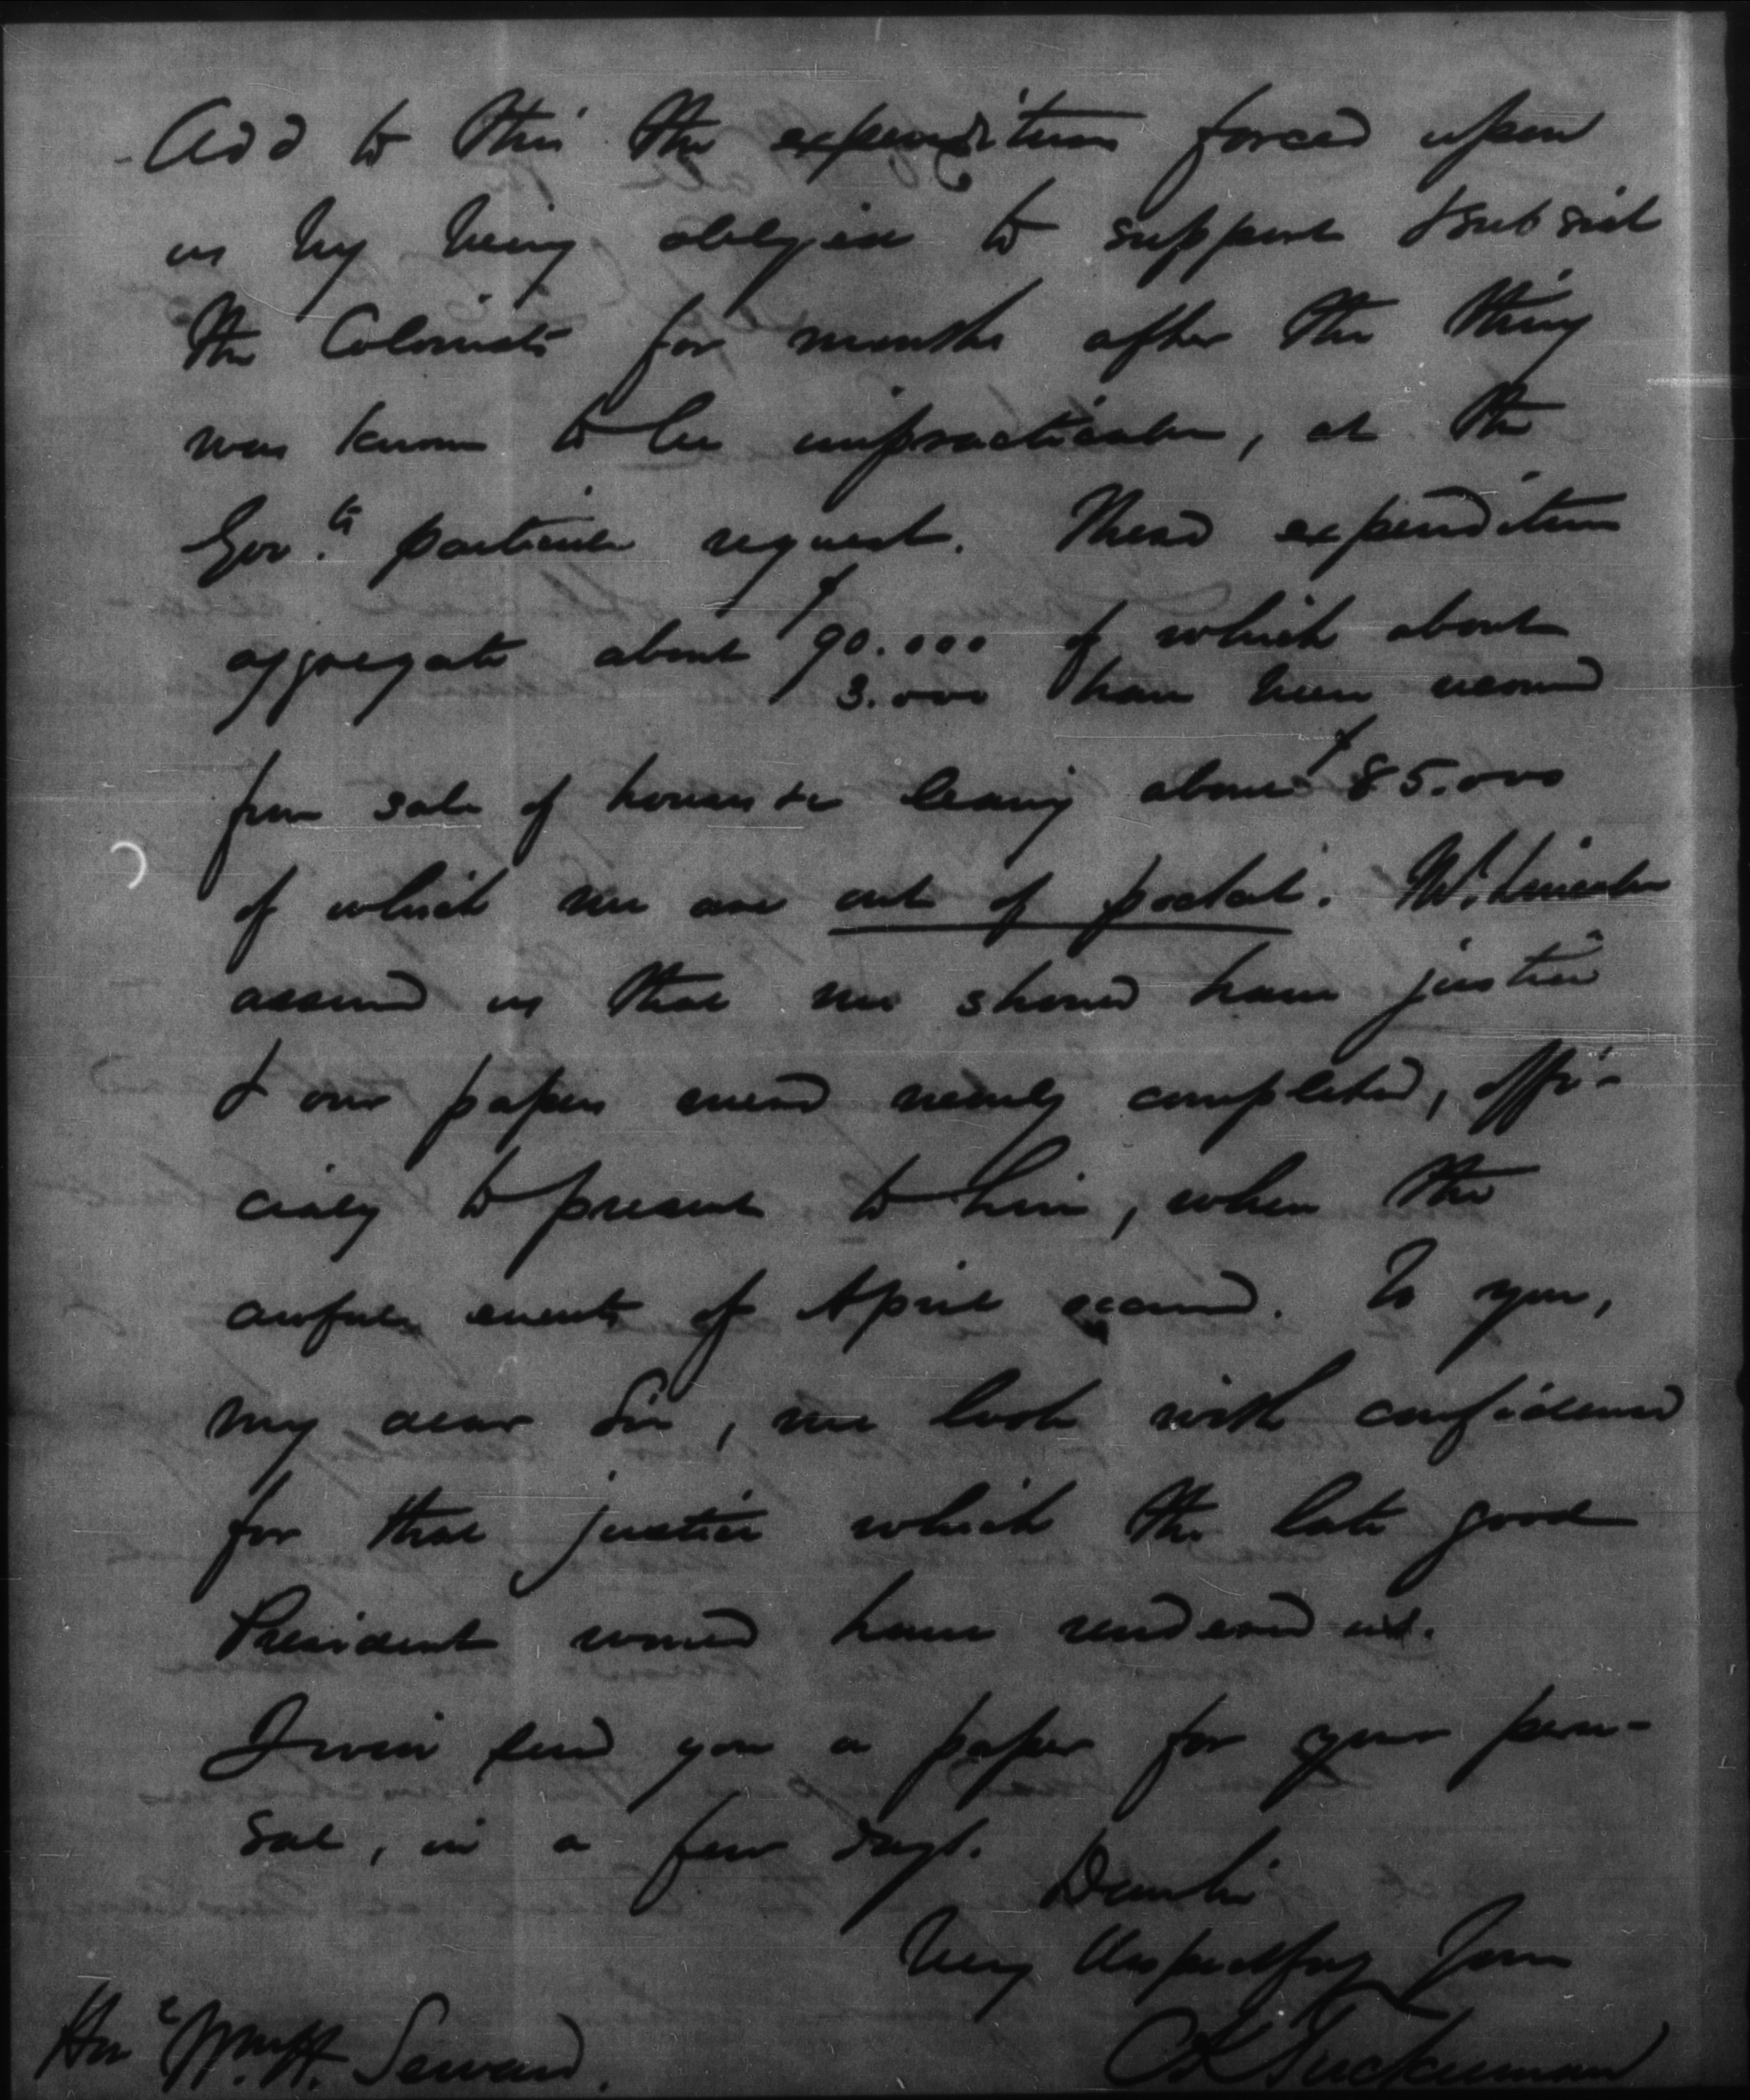 Add to this the expenditures forced upon
us by being obliged to support & subsist
the Colonists for months after the thing
was known to be impracticable, at the
Govt's particular request. These expenditures
aggregate about $90.000 of which about
3.000 have been recovered
from sale of houses &c leaving about $85.000
of which we are out of pocket. Mr. Lincoln
assured us that we should have justice
& our papers were nearly completed, offi-
cially to present to him, when the
awful events of April occurred. To you,
my dear Sir, we look with confidence
for that justice which the late good
President would have rendered us.
I will send you a paper for your peru-
sal, in a few days.
Dear Sir
Very Respectfully Yours
Honl Wm H. Seward.
C K Tuckerman